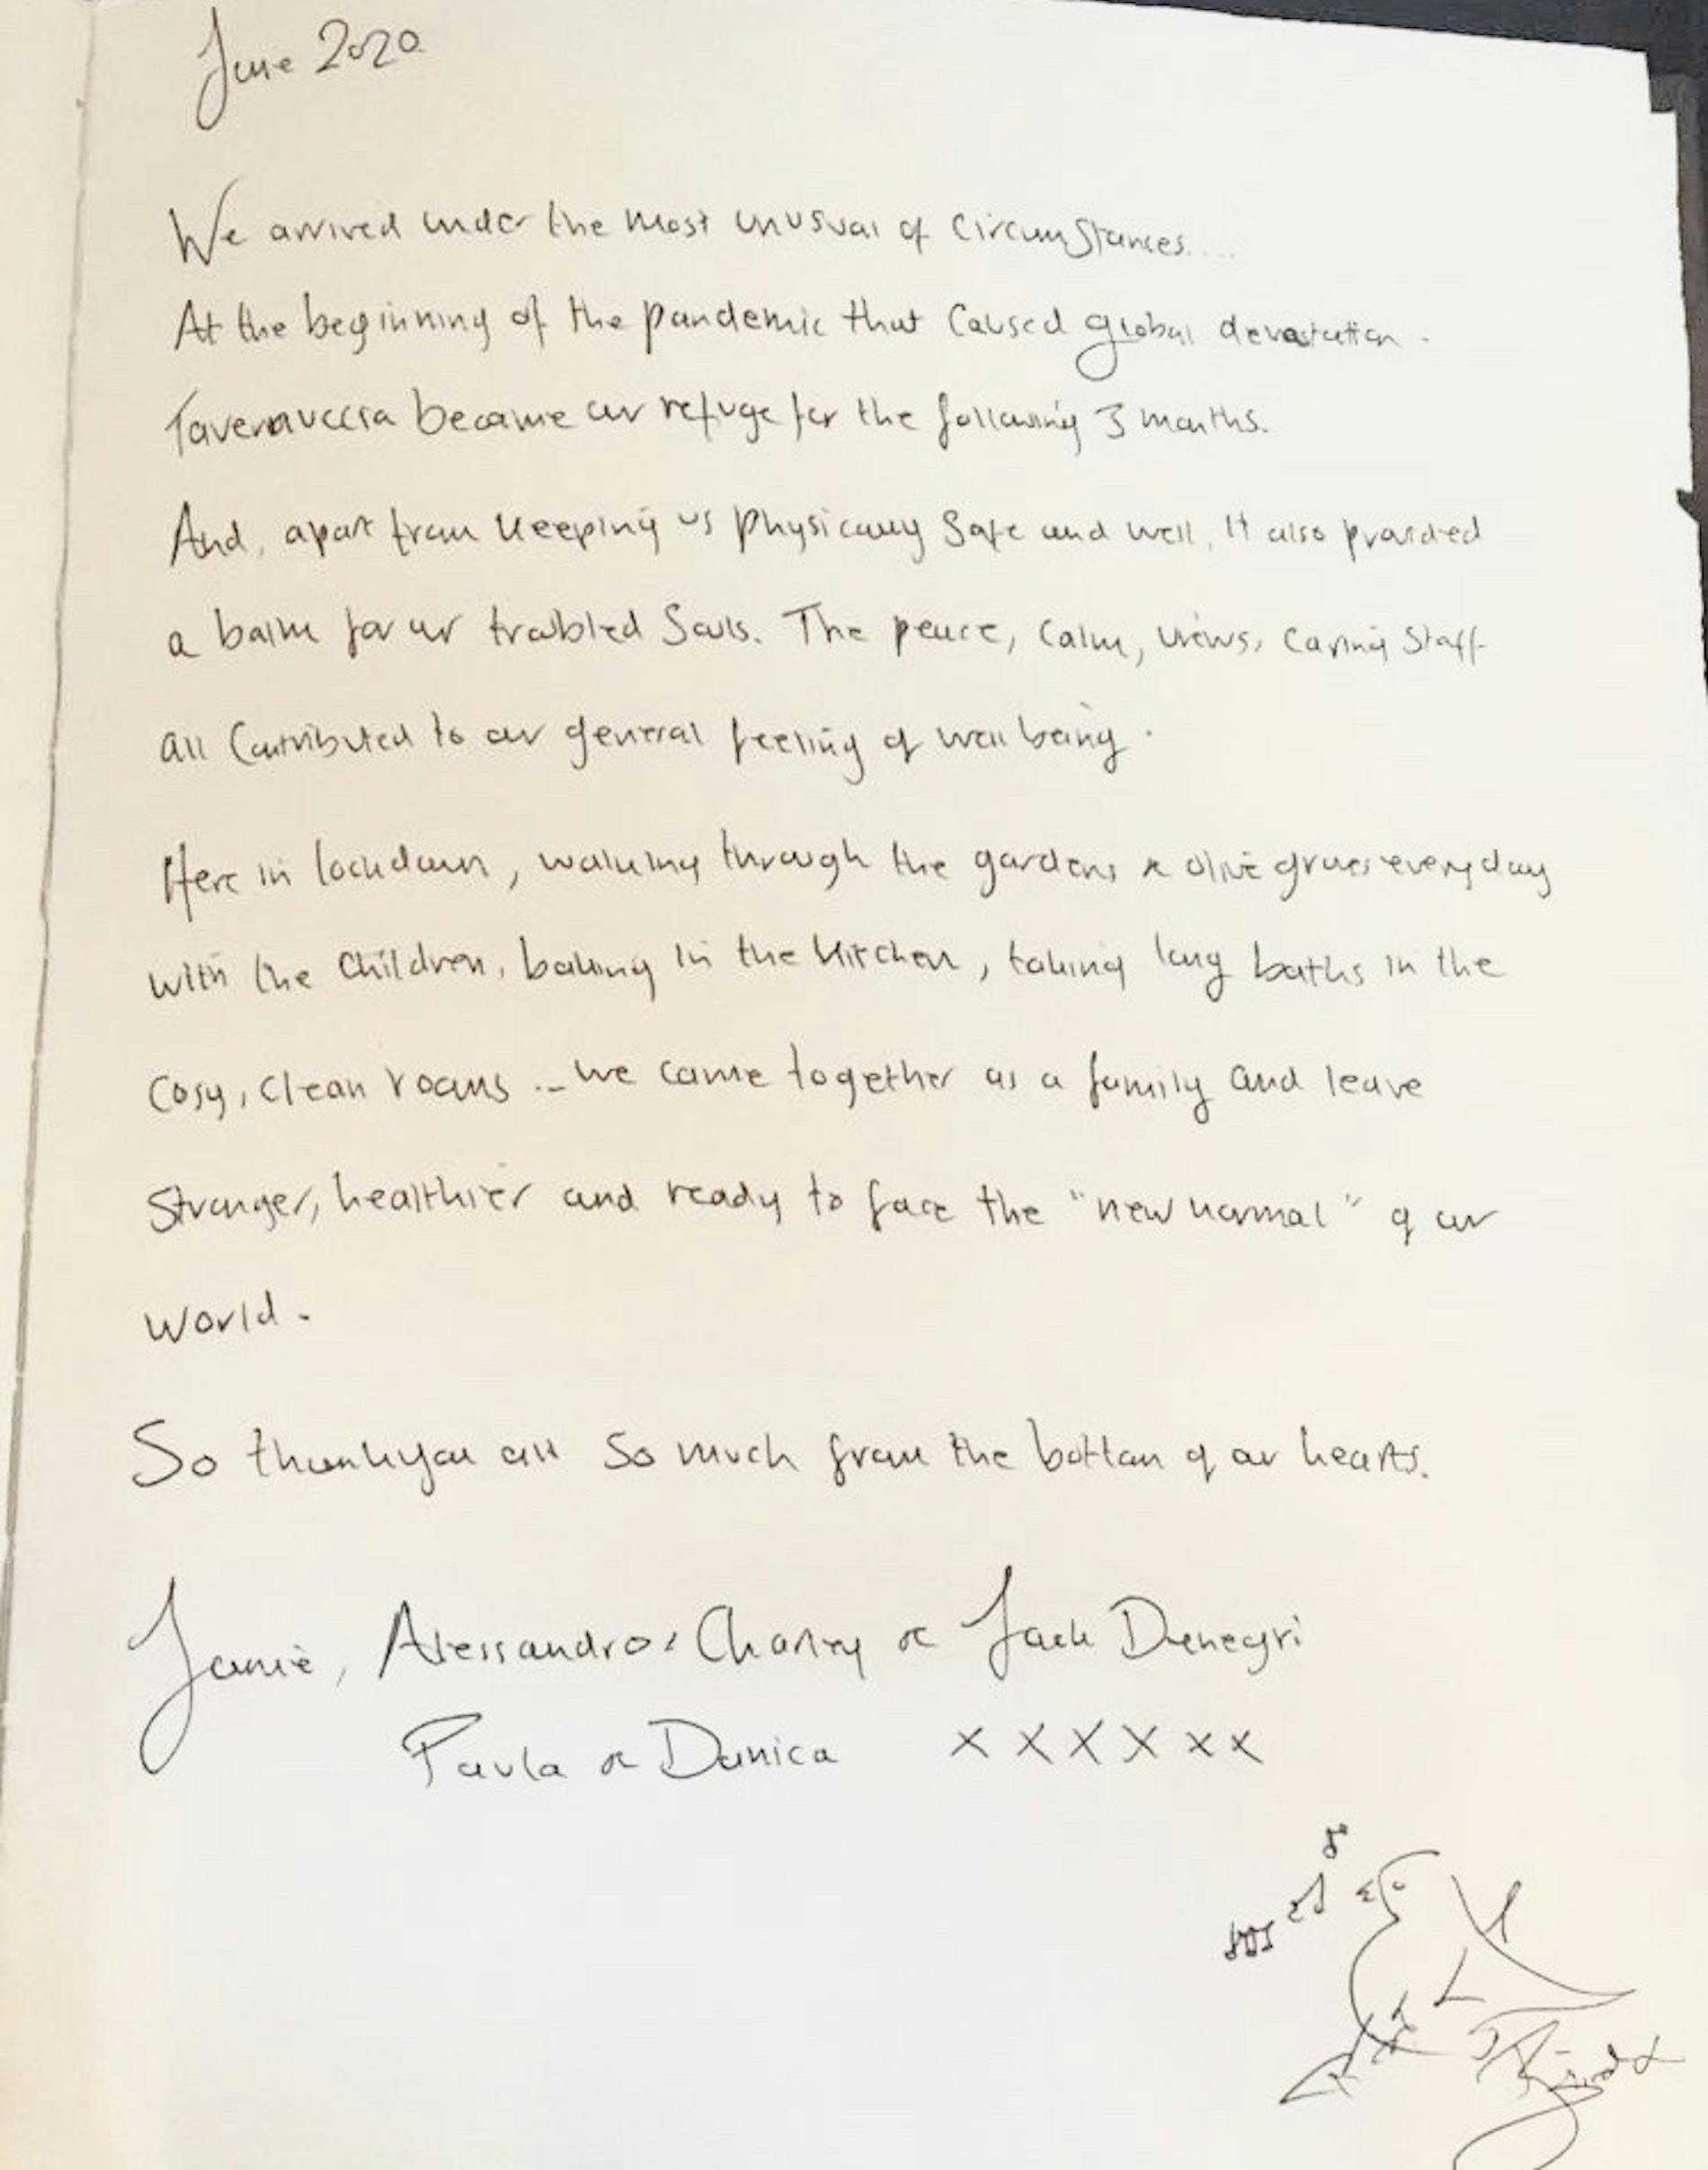 June 2020
We arrived under the most unusual of circumstances....
At the beginning of the pandemic that caused global devastation.
Tavernaccia became our refuge for the following 3 months.
And, apart from keeping us physically safe and well, it also provided
a balm for our troubled souls. The peace, calm, views, caring staff
all contributed to our general feeling of well being.
Here in lockdown, walking through the gardens & olive groves everyday
with the children, baking in the kitchen, taking long baths in the
cosy, clean rooms ... we came together as a family and leave
stronger, healthier and ready to face the "new normal" of our
world.
So thankyou all so much from the bottom of our hearts.
Jamie, Alessandro, Charley & Jack Denegri
Paula & Danica x x x x x x